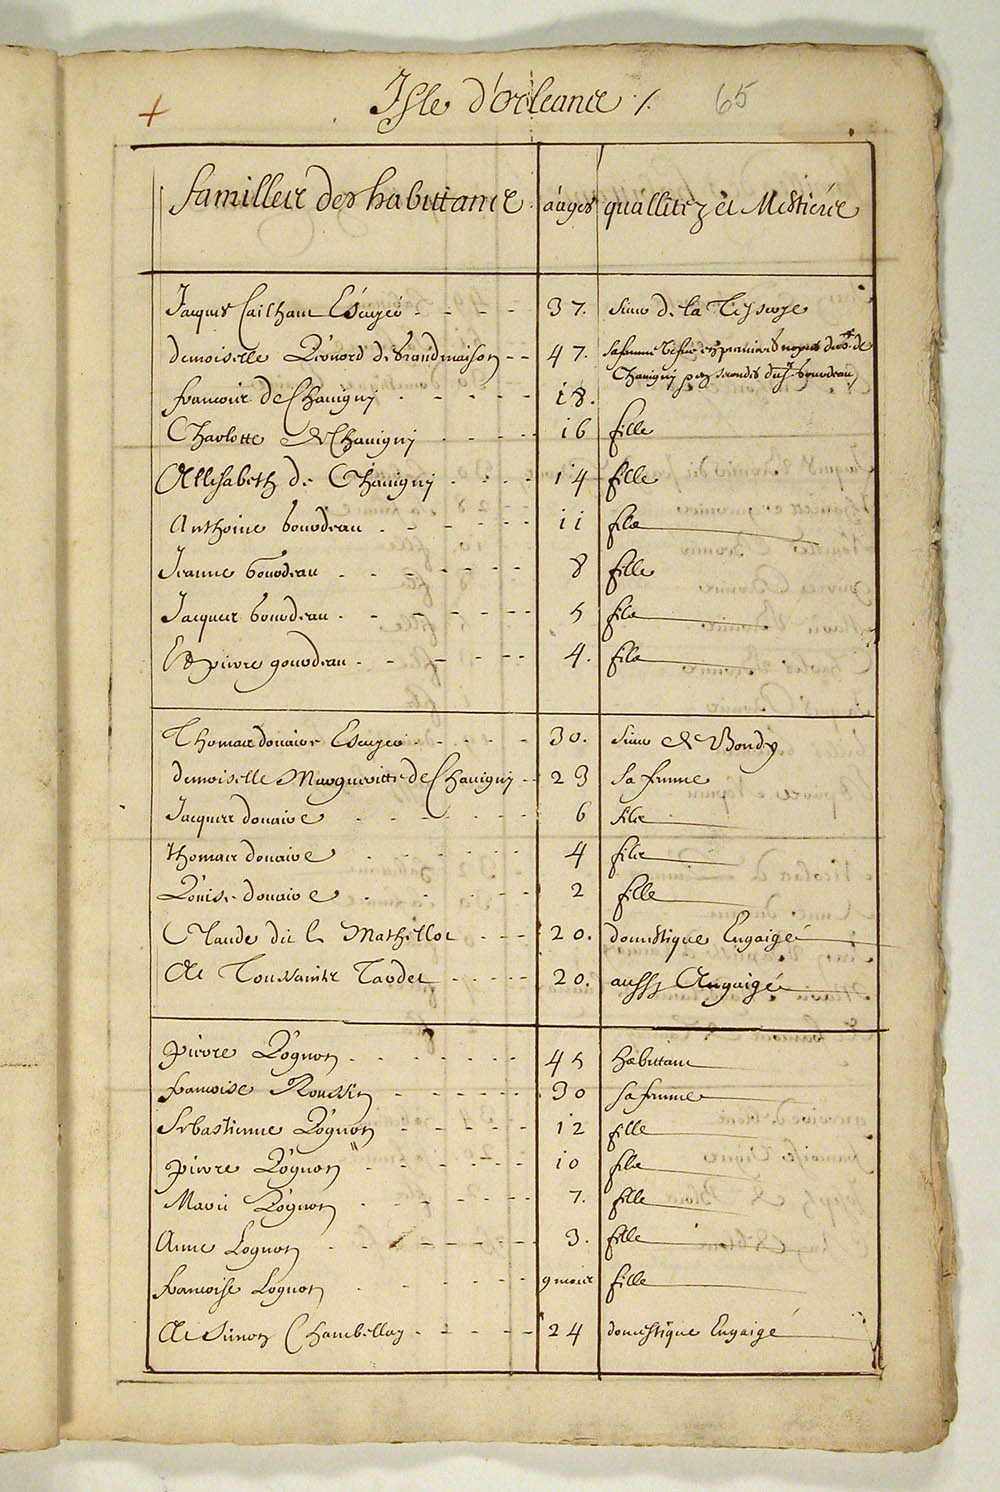 Isle d'Orleans /. 65
familles des habittans aages quallitez et Mestiers
Jacques Cailhaut Escuyer 37. Sieur de la Tesserye
demoiselle Leonord de Grandmaison 47. sa femme vefue en premieres nopces du Sr. de Chauigny
francoise de Chauigny 18.
Charlotte de Chauigny 16 fille
Et Elisabeth de Chauigny 14 fille
Anthoine Gourdeau 11 filz
Jeanne Gourdeau 8 fille
Jacques Gourdeau 5 filz
Et pierre gourdeau 4. filz
Thomas douaire Escuyer 30. Sieur de Bondy
demoiselle Margueritte de Chauigny 23 sa femme
Jacques douaire 6 filz
thomas douaire 4 filz
Louise douaire 2 fille
Claude dit 20. domestique Engaigé
Et Toussainct 20. aussy Engaigé
pierre Lognon 45 habittant
francoise Roussin 30 sa femme
Sebastienne Lognon 12 fille
pierre Lognon 10 filz
Marie Lognon 7. fille
Anne Lognon 3. fille
francoise Lognon 9 mois fille
Et Simon Chambellay 24 domestique Engaigé